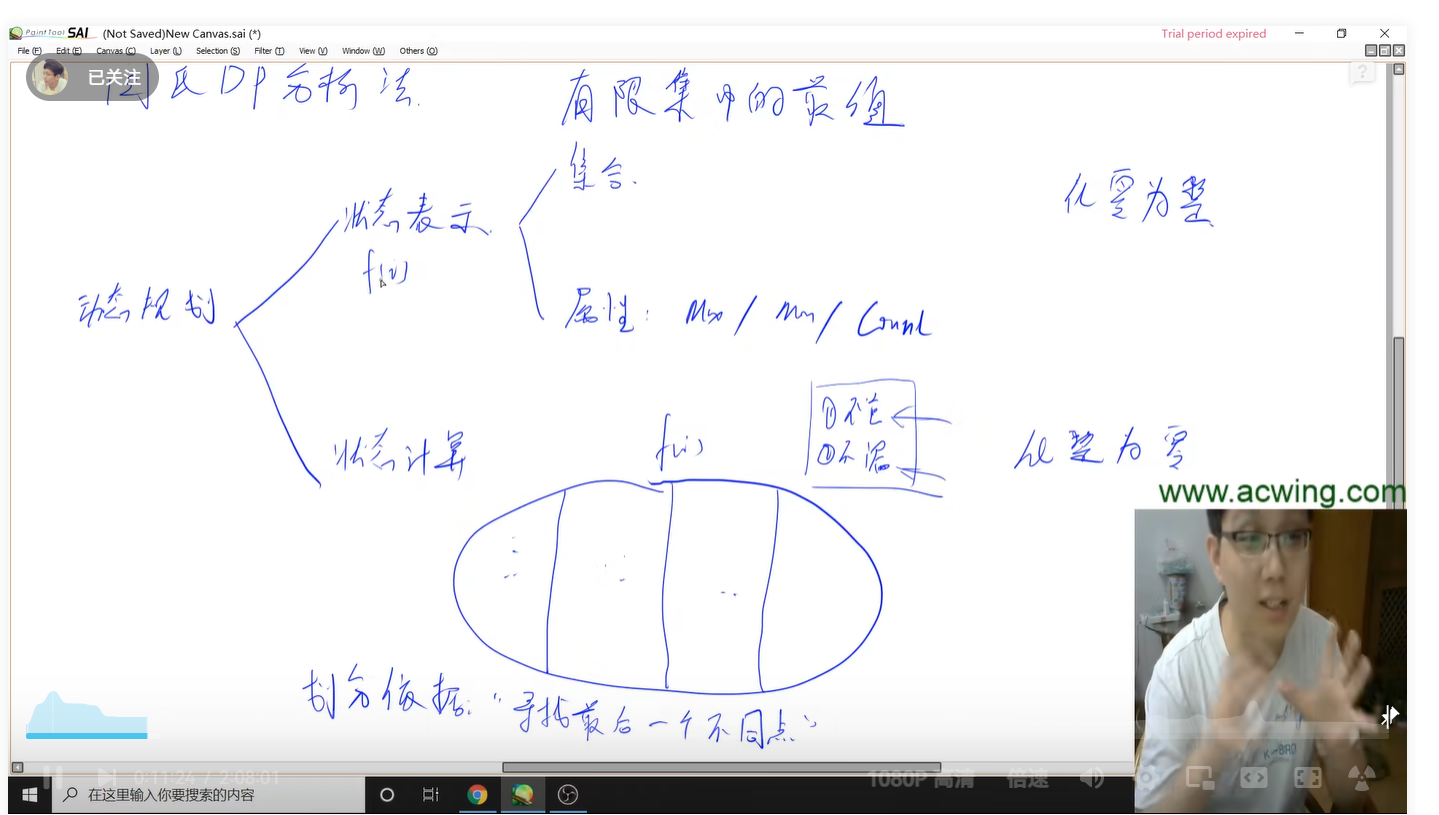 PaintTool SAI (Not Saved)New Canvas.sai (*)
Trial period expired
File (F) Edit (E) Canvas (C) Layer (L) Selection (S) Filter (T) View (V) Window (W) Others (O)
已关注
氏DP分析法.
有限集中的最值
集合.
化零为整
状态表示.
f(i)
动态规划
属性: Max / Min / Count
①不重
②不漏
f(i)
状态计算
化整为零
www.acwing.com
划分依据: "寻找最后一个不同点"
0:11:24 / 2:08:01
1080P 高清 倍速
在这里输入你要搜索的内容